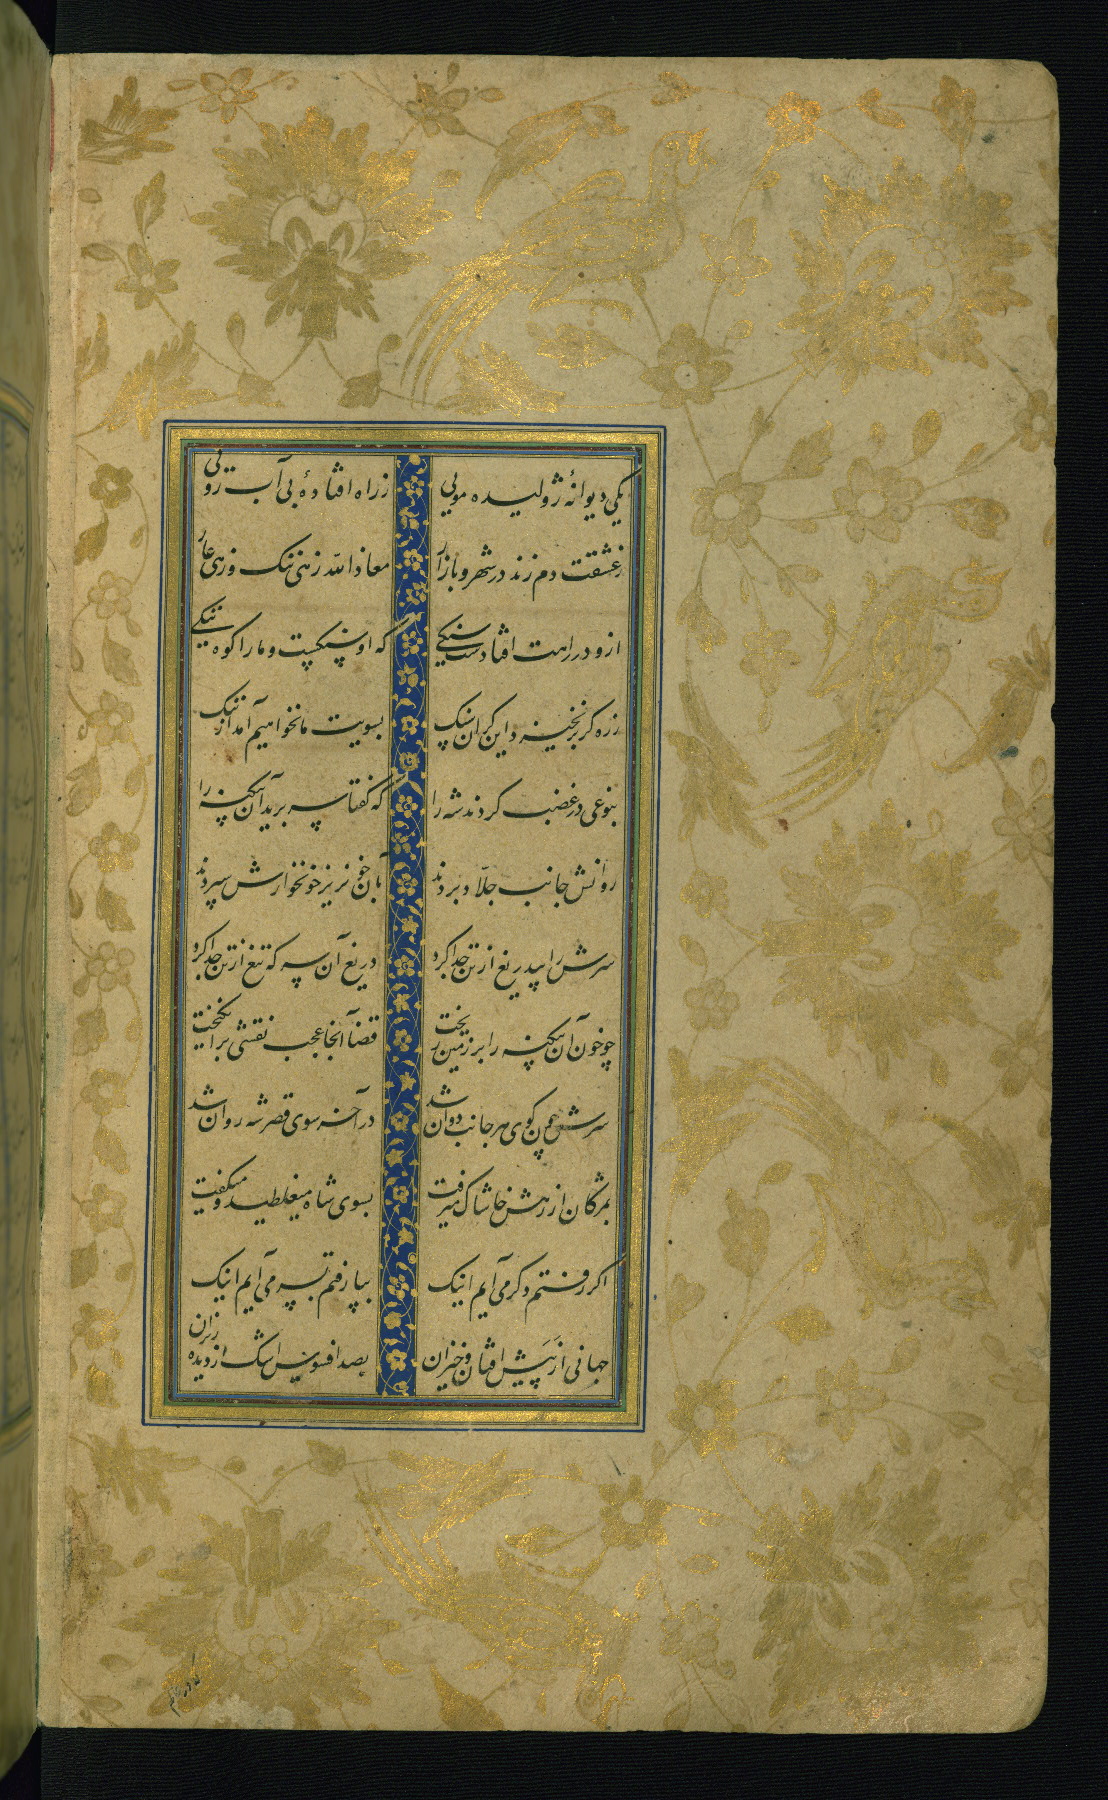 یکی دیوانهٔ ژولیده مویی زراه افتادهٔ بی آب رویی
زعشقت دم زند در شهر و بازار معاذ الله زهی ننک و زهی عار
ازو در راهت افتادست سنکی که او سنکست و ما را کوه ننکی
بسویت ما نخواهیم آمد از ننک
بنوعی در غضب کردند شه را که گفتا سر برید آن بیکنه را
روانش جانب جلّاد بردند بآن خونریز خونخوارش سپردند
سرش را بیدریغ از تن جدا کرد دریغ آن سر که تیغ از تن جدا کرد
چو خون آن بیکنه را بر زمین ریخت قضا آنجا عجب نقشی برانکیخت
سرش چون کوی هر جانب دوان شد در آخر سوی قصر شه روان شد
بمژکان از رهش خاشاک میرفت بسوی شاه میغلطید و میکفت
اکر رفتم دکر می آیم اینک بپا رفتم بسر می آیم اینک
جهانی از پیش افتان و خیزان بصد افسوس اشک از دیده ریزان